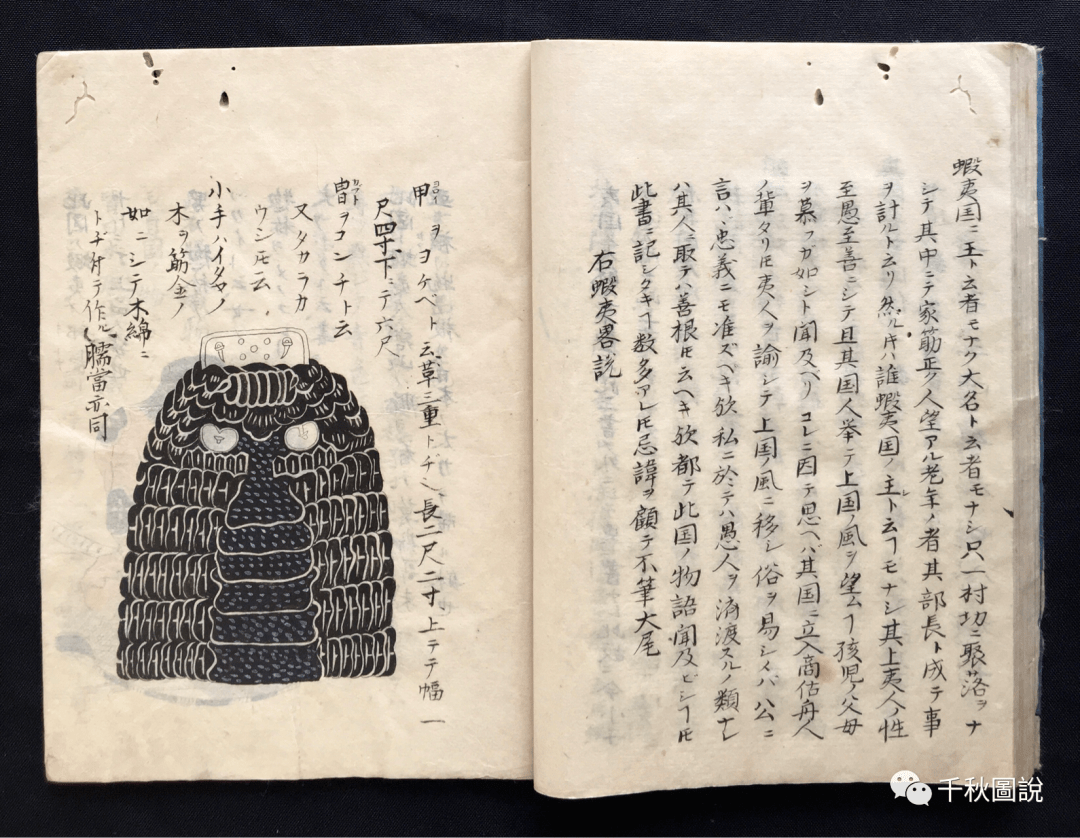 蝦夷国ニ王ト云者モナク大名ト云者モナシ只一村切ニ聚落ヲナ
シテ其中ニテ家筋正ク人望アル老年ノ者其部長ト成テ事
ヲ計ルト云リ然ルキハ誰蝦夷国ノ主ト云フモナシ其上夷人ノ性
至愚至善ニシテ且其国人挙テ上国ノ風ヲ望ムヿ孩児ノ父母
ヲ慕フカ如シト聞及ヘリコレニ因テ思ヘハ其国ニ立入商估舟人
ノ輩タリㇳモ夷人ヲ諭シテ上国ノ風ニ移シ俗ヲ易シイバ公ニ
言ハヽ忠義ニモ准ズベキ欤私ニ於テハ愚人ヲ済渡スルノ類ナレ
ハ其人取テハ善根ㇳモ云ヘキ欤都テ此国ノ物語聞及ビシヿㇳモ
此書ニ記シタキヿ数多アレㇳモ忌諱ヲ顧テ不筆大尾
右蝦夷畧説
甲ヲヨケヘト云草三重トヂ長一尺二寸上ニテ幅一
尺四寸下ニテ六尺
冑ヲコンチト云
又タカラカ
ウンモ云
小手ハイタヾノ
木ヲ筋金ノ
如ニシテ木綿ニ
トヂ付テ作ル臑當亦同
千秋圖說